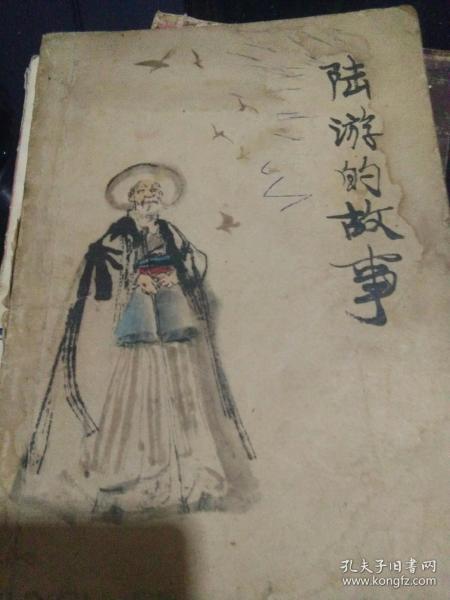 陆游的故事
孔夫子旧书网
www.kongfz.com